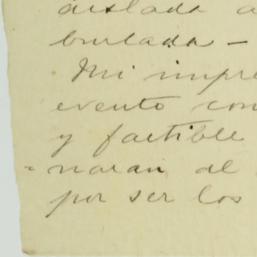 aislada a
burlada –
Mi impre
evento con
y factible
naran al
por ser los